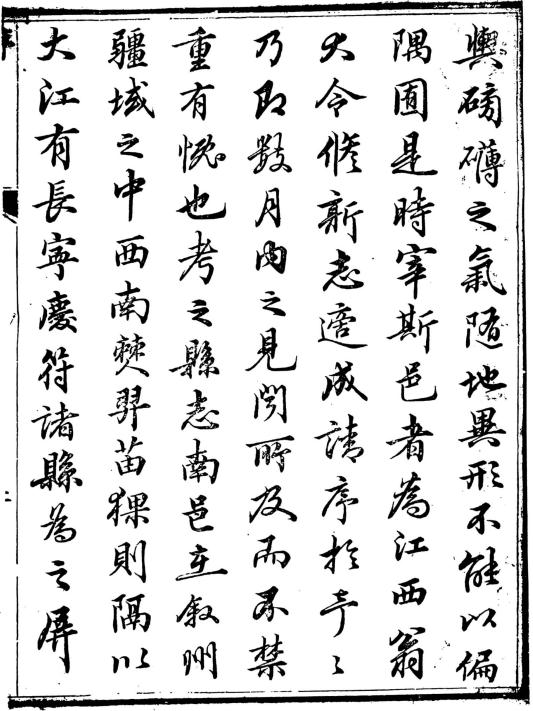 輿磅礡之氣隨地異形不能以偏
隅囿是時宰斯邑者為江西翁
大令修新志適成請序於予〻
乃即數月內之見聞所及而不禁
重有慨也考之縣志南邑在叙州
疆域之中西南僰羿苗猓則隔以
大江有長寧慶符諸縣為之屏